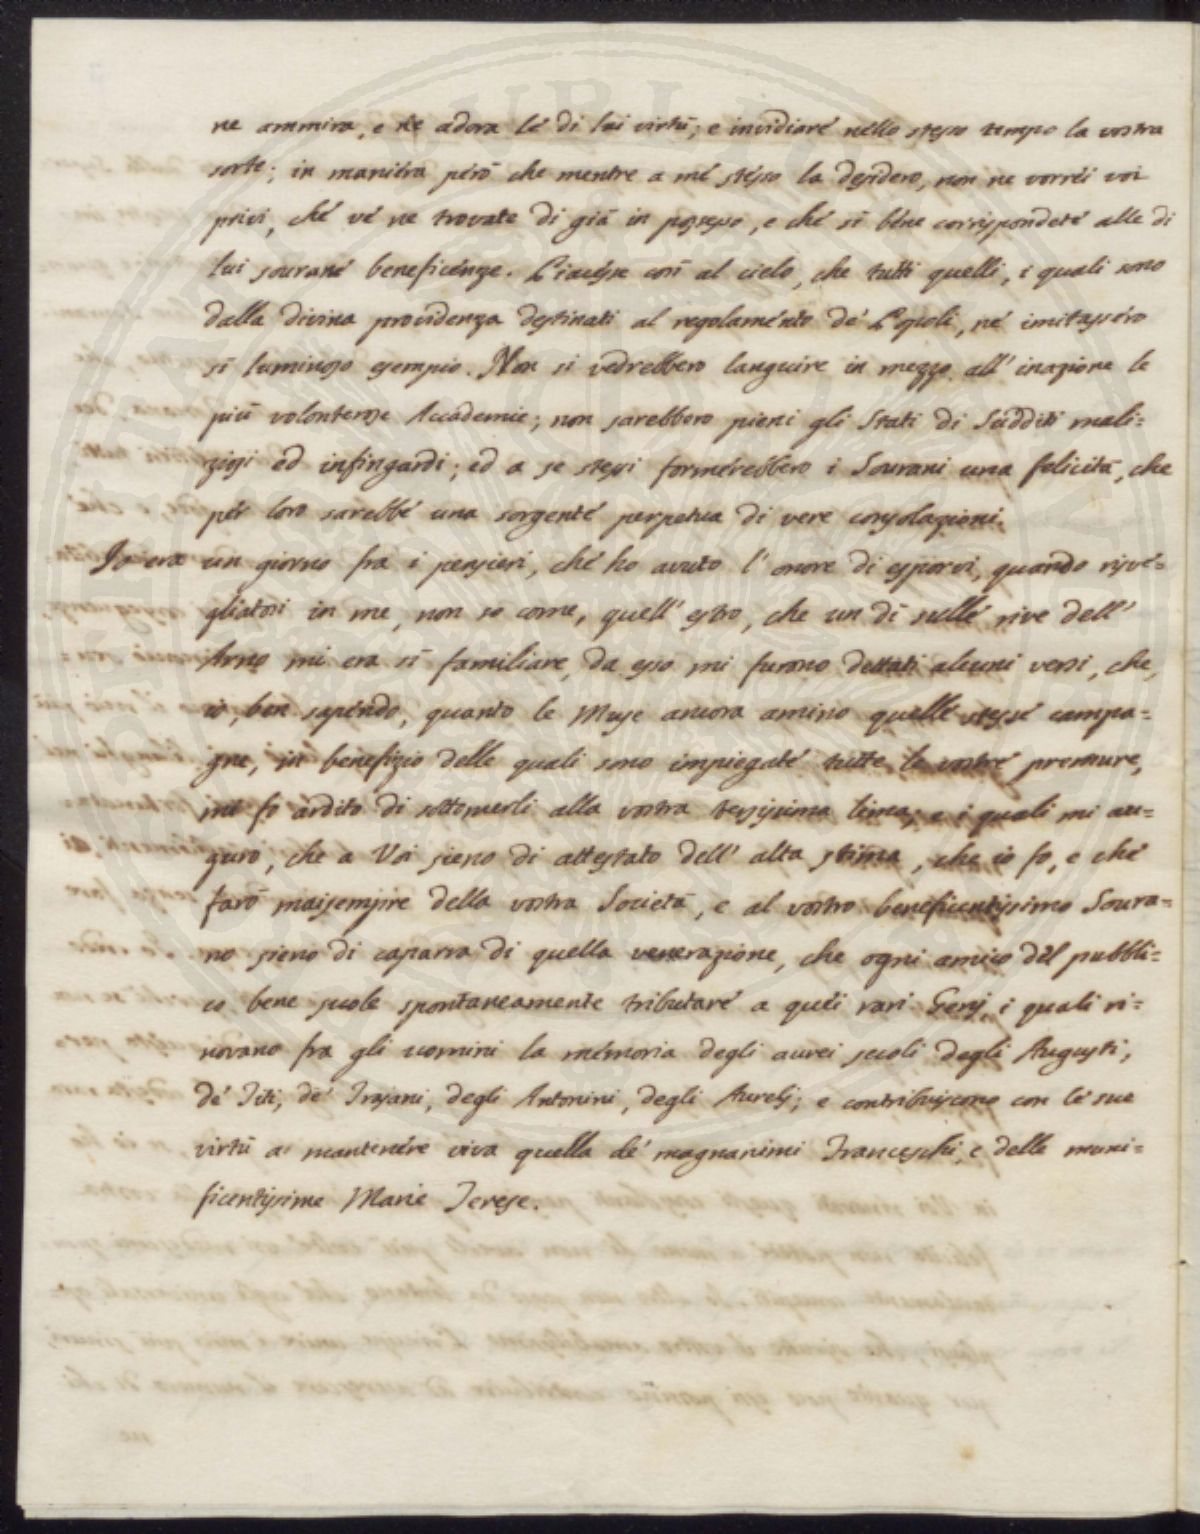 ne ammira, e ne adora le di lui virtù; e invidiare nello stesso tempo la vostra
sorte; in maniera però che mentre a me stesso la desidero, non ne vorrei voi
privi, che ve ne trovate di già in possesso, e che sì bene corrispondete alle di
lui sourane beneficenze. Piacesse così al cielo, che tutti quelli, i quali sono
dalla divina providenza destinati al regolamento de' Popoli, ne imitassero
sì luminoso esempio. Non si vedrebbero languire in mezzo all' inazione le
più volonterose Accademie; non sarebbero pieni gli Stati di Sudditi mali=
ziosi ed infingardi; ed a se stessi formerebbero i Sourani una felicità, che
per loro sarebbe una sorgente perpetua di vere consolazioni.
Io era un giorno fra i pensieri, che ho avuto l' onore di esporvi, quando risve=
gliatosi in me, non so come, quell' estro, che un dì sulle rive dell'
Arno mi era sì familiare, da esso mi furono dettati alcuni versi, che,
io, ben sapendo, quanto le Muse ancora amino quelle stesse campa=
gne, in benefizio delle quali sono impiegate tutte le vostre premure,
mi fo ardito di sottometterli alla vostra tersissima lima; e i quali mi au=
guro, che a Voi sieno di attestato dell' alta stima, che io fo, e che
farò maisempre della vostra Società, e al vostro beneficentissimo Soura=
no sieno di caparra di quella venerazione, che ogni amico del pubbli=
co bene suole spontaneamente tributare a quei rari Genj, i quali ri=
novano fra gli uomini la memoria degli aurei secoli degli Augusti,
de' Titi, de' Trajani, degli Antonini, degli Aurelj; e contribuiscono con le sue
virtù a mantenere viva quella de' magnanimi Franceschi, e delle muni=
ficentissime Marie Terese.